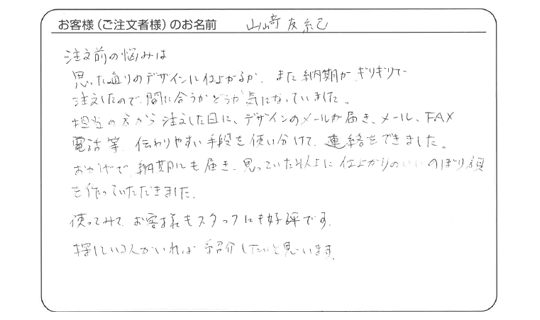 お客様（ご注文者様）のお名前 山崎 友紀
注文前の悩みは
思った通りのデザインに仕上がるか、また納期がギリギリで
注文したので、間に合うかどうか気になっていました。
担当の方から注文した日に、デザインのメールが届き、メール、FAX
電話等 伝わりやすい手段を使い分けて、連絡をできました。
おかげで納期にも届き、思っていた以上に仕上がりのいいのぼり旗
を作っていただきました。
使ってみて お客様もスタッフにも好評です。
探している人がいれば 紹介したいと思います。